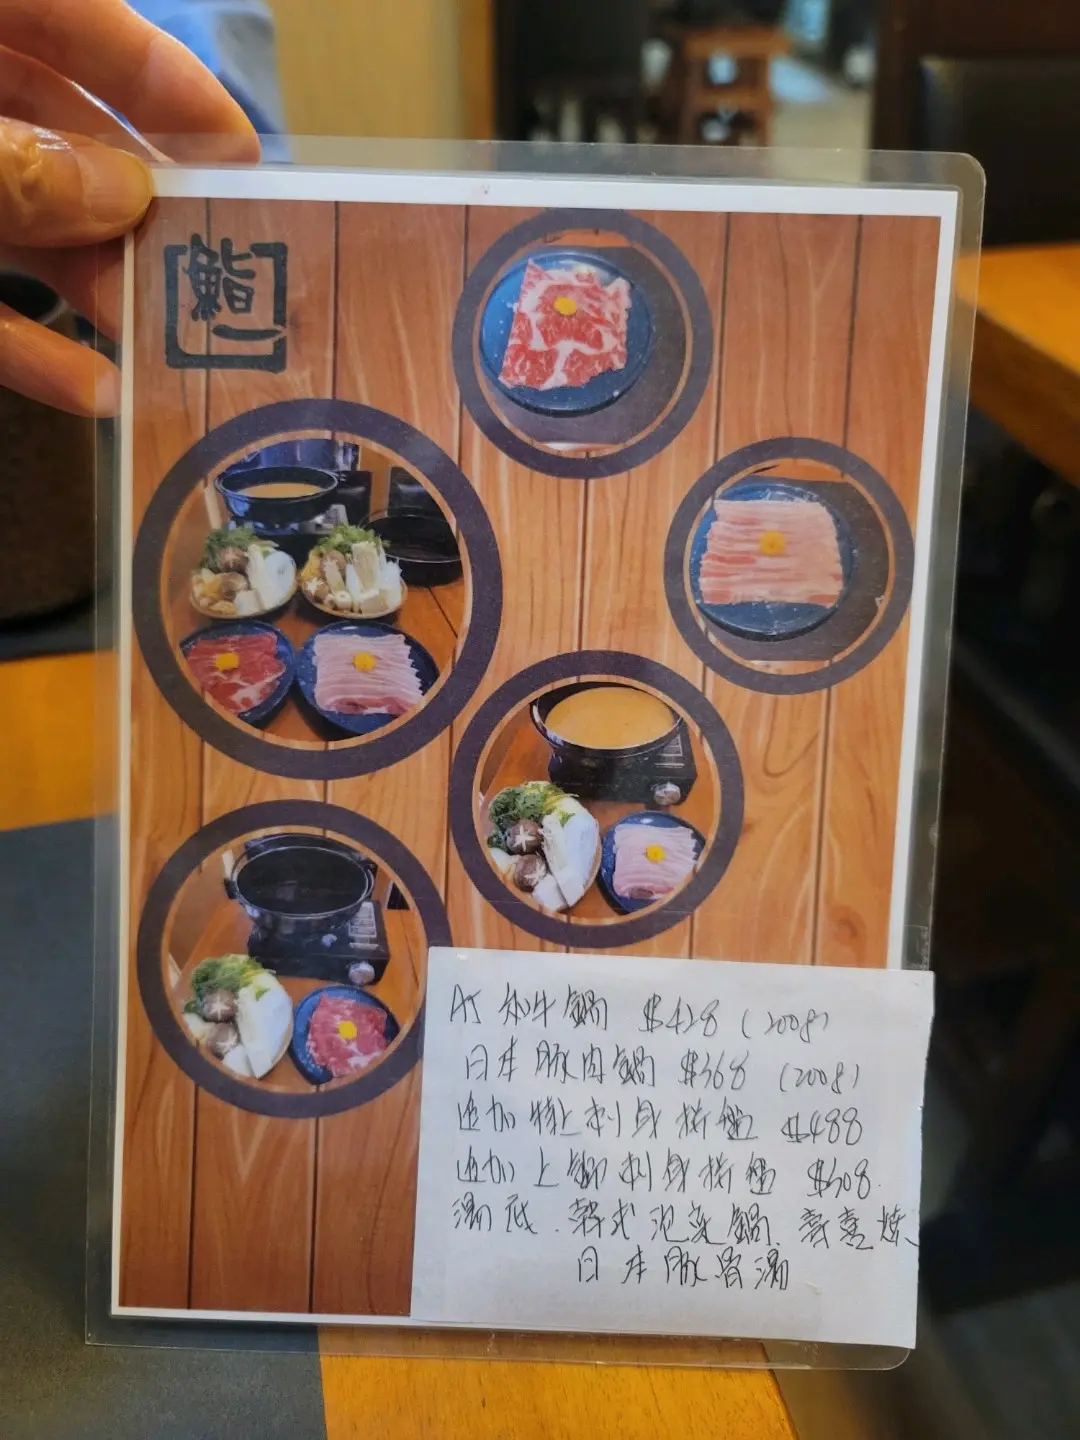 鮨一
A5 和牛鍋 $428 (200g)
日本豚肉鍋 $368 (200g)
追加特上刺身拼盤 $488
追加上鄉刺身拼盤 $308.
湯底.韓式泡菜鍋.壽喜燒、
日本豚骨湯